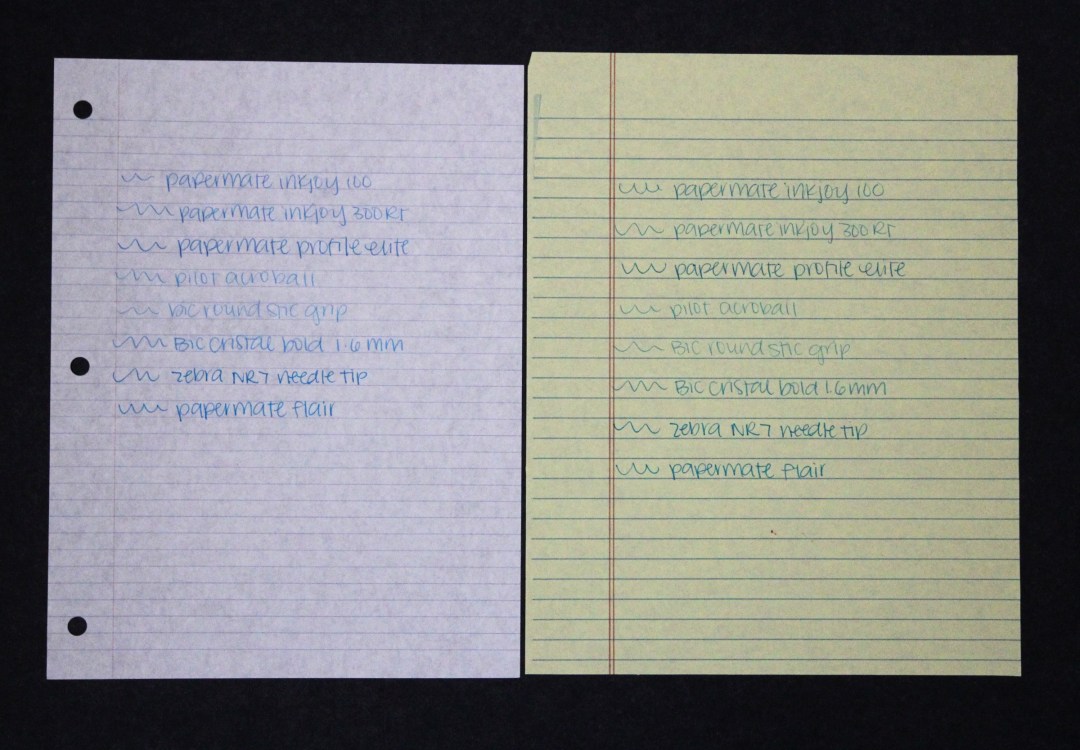 papermate inkjoy 100
papermate inkjoy 300RT
papermate profile elite
pilot acroball
bic round stic grip
BIC cristal bold 1.6mm
zebra NR7 needle tip
papermate flair
papermate inkjoy 100
papermate inkjoy 300RT
papermate profile elite
pilot acroball
BIC round stic grip
BIC cristal bold 1.6mm
zebra NR7 needle tip
papermate flair